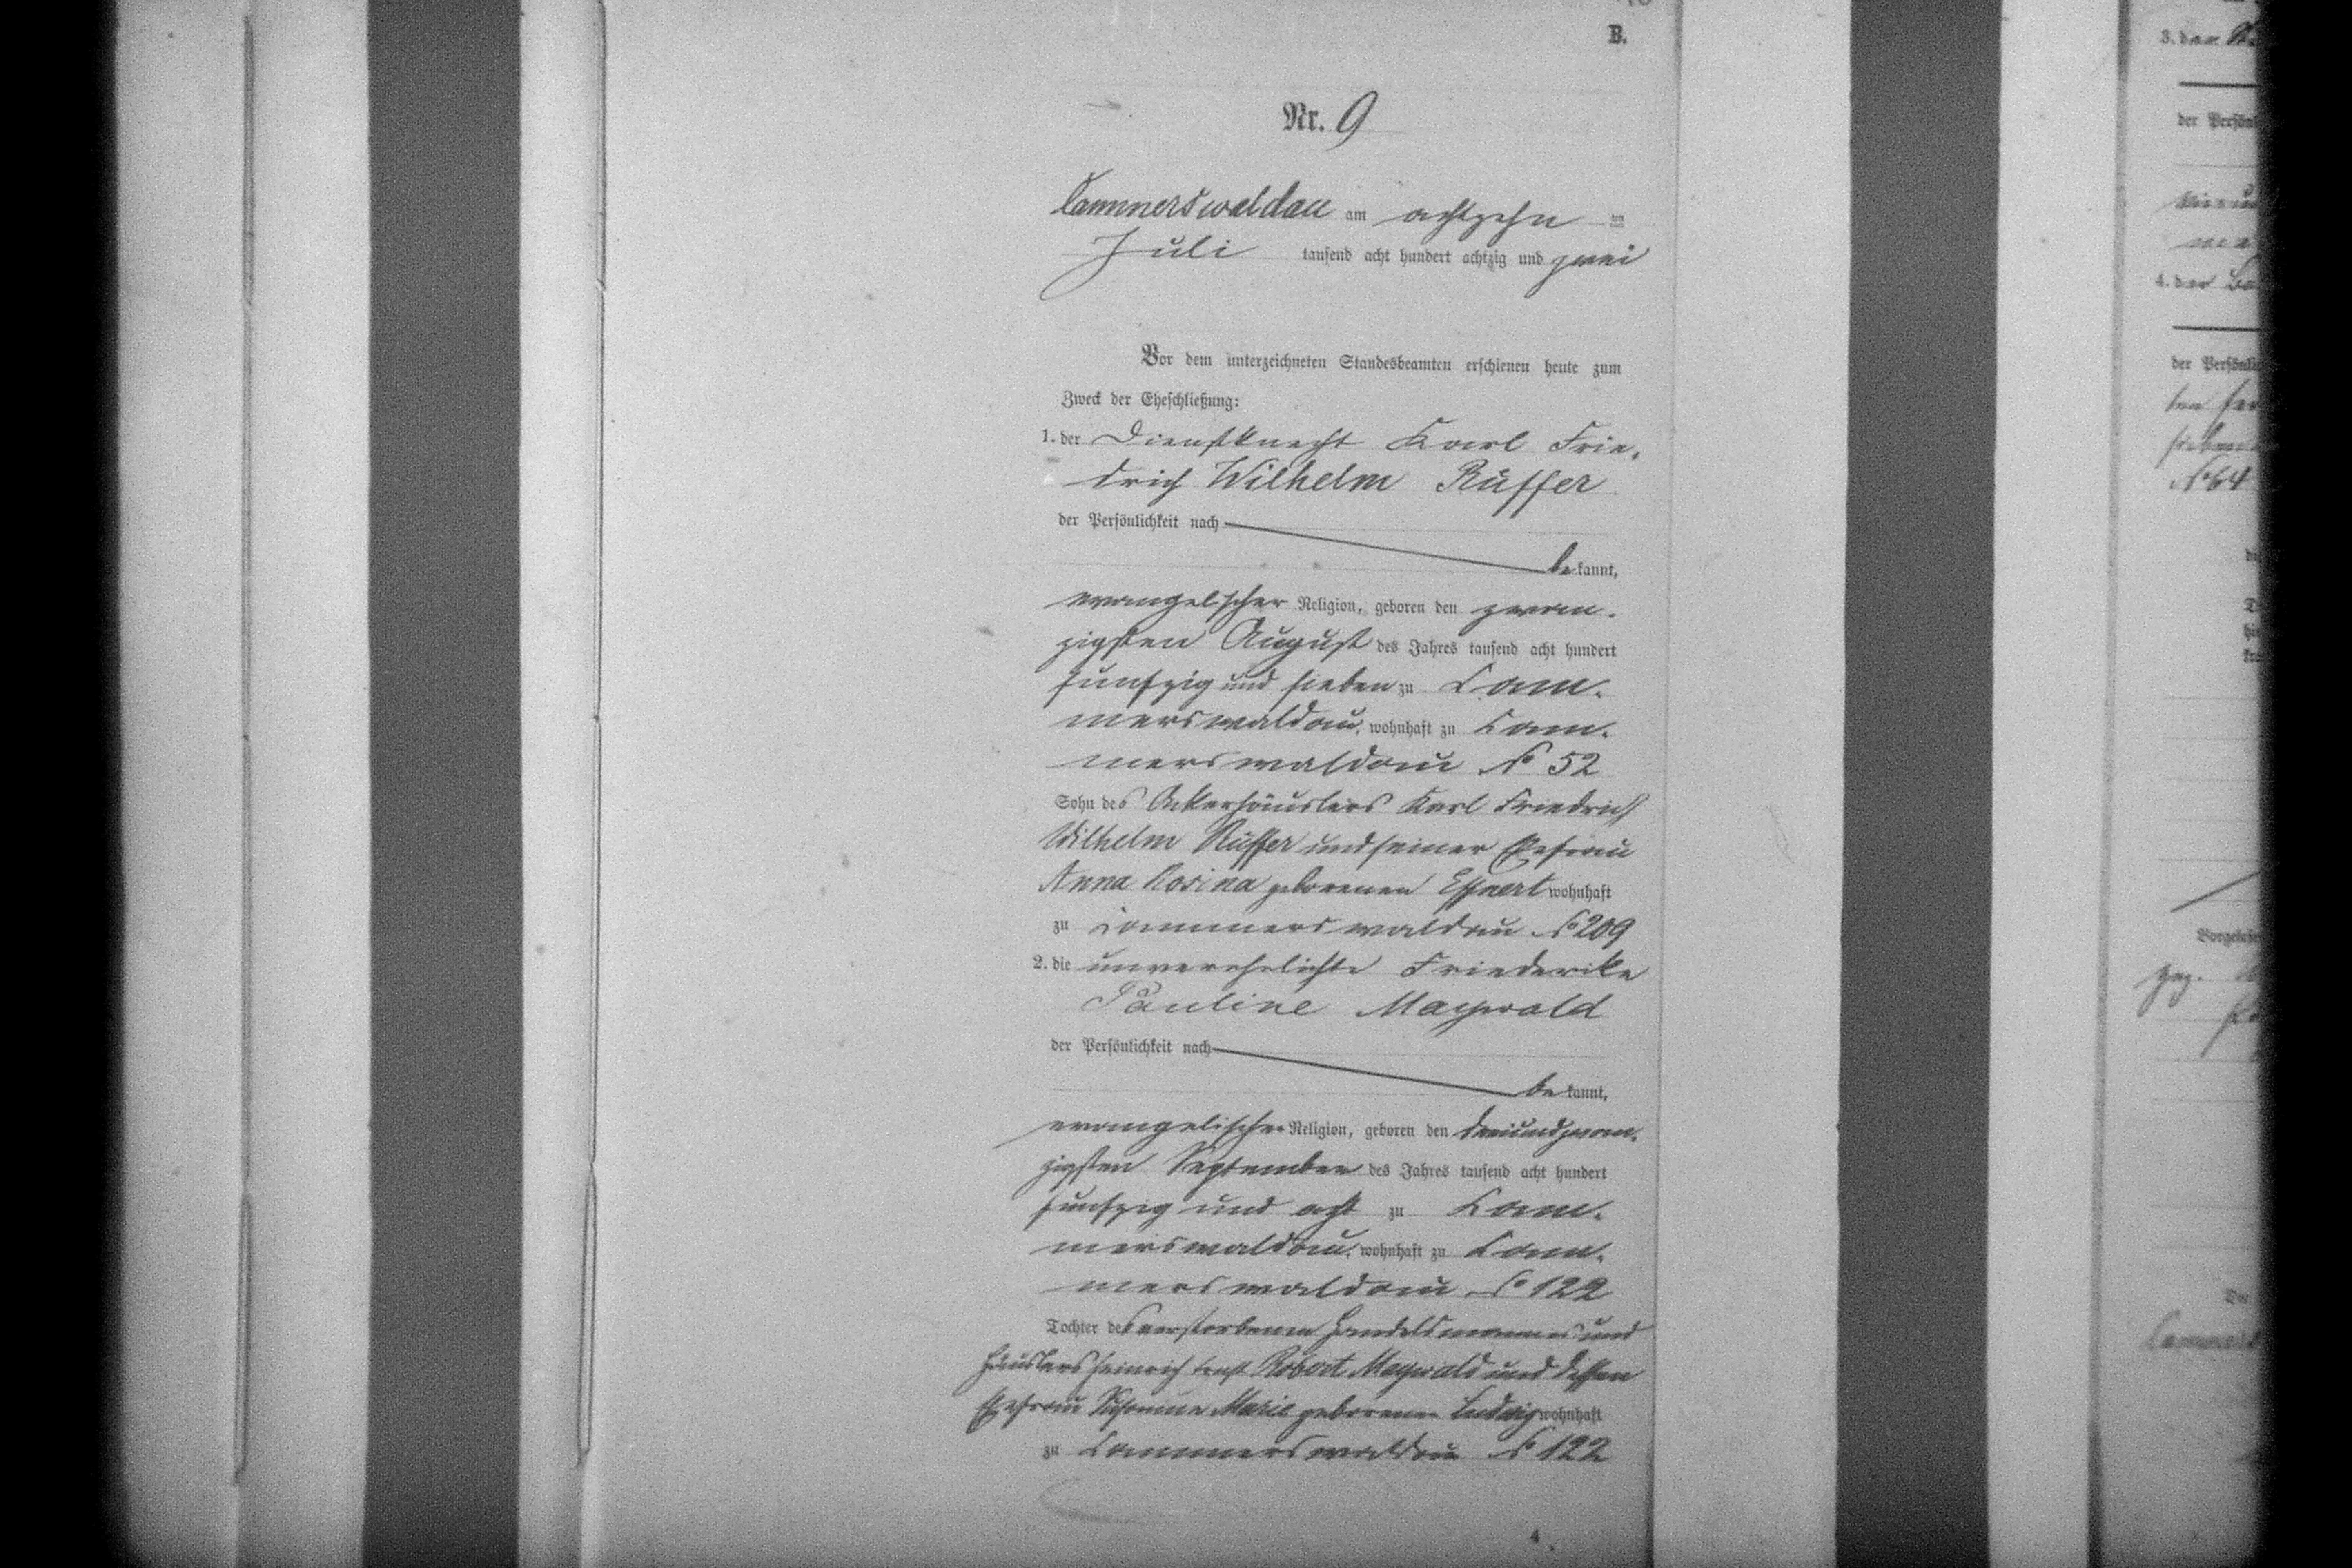 B.
Nr. 9
Cammerswaldau am achtzehn ten
Juli tausend acht hundert achtzig und zwei
Vor dem unterzeichneten Standesbeamten erschienen heute zum
Zweck der Eheschließung:
1. der Dienstknecht Karl Frie-
drich Wilhelm Rüffer
der Persönlichkeit nach
be kannt,
evangelischer Religion, geboren den zwan-
zigsten August des Jahres tausend acht hundert
funfzig und sieben zu Cam-
merswaldau, wohnhaft zu Cam-
merswaldau No 52
Sohn des Ackerhäuslers Karl Friedrich
Wilhelm Rüffer und seiner Ehefrau
Anna Rosina geborenen wohnhaft
zu Cammerswaldau No 209
2. die unverehelichte Friederike
Pauline Maywald
der Persönlichkeit nach
be kannt,
evangelischer Religion, geboren den dreiundzwan-
zigsten September des Jahres tausend acht hundert
funfzig und acht zu Cam-
merswaldau, wohnhaft zu Cam-
merswaldau No 122
Tochter des verstorbenen Handelsmannes und
Häuslers Heinrich Ernst Robert Maywald und dessen
Ehefrau Susanna Marie geborenen Ludwig wohnhaft
zu Cammerswaldau No 122
4
3. der
der Persönl
4. der
der Persönli
No 64
Vorgelesen
gez.